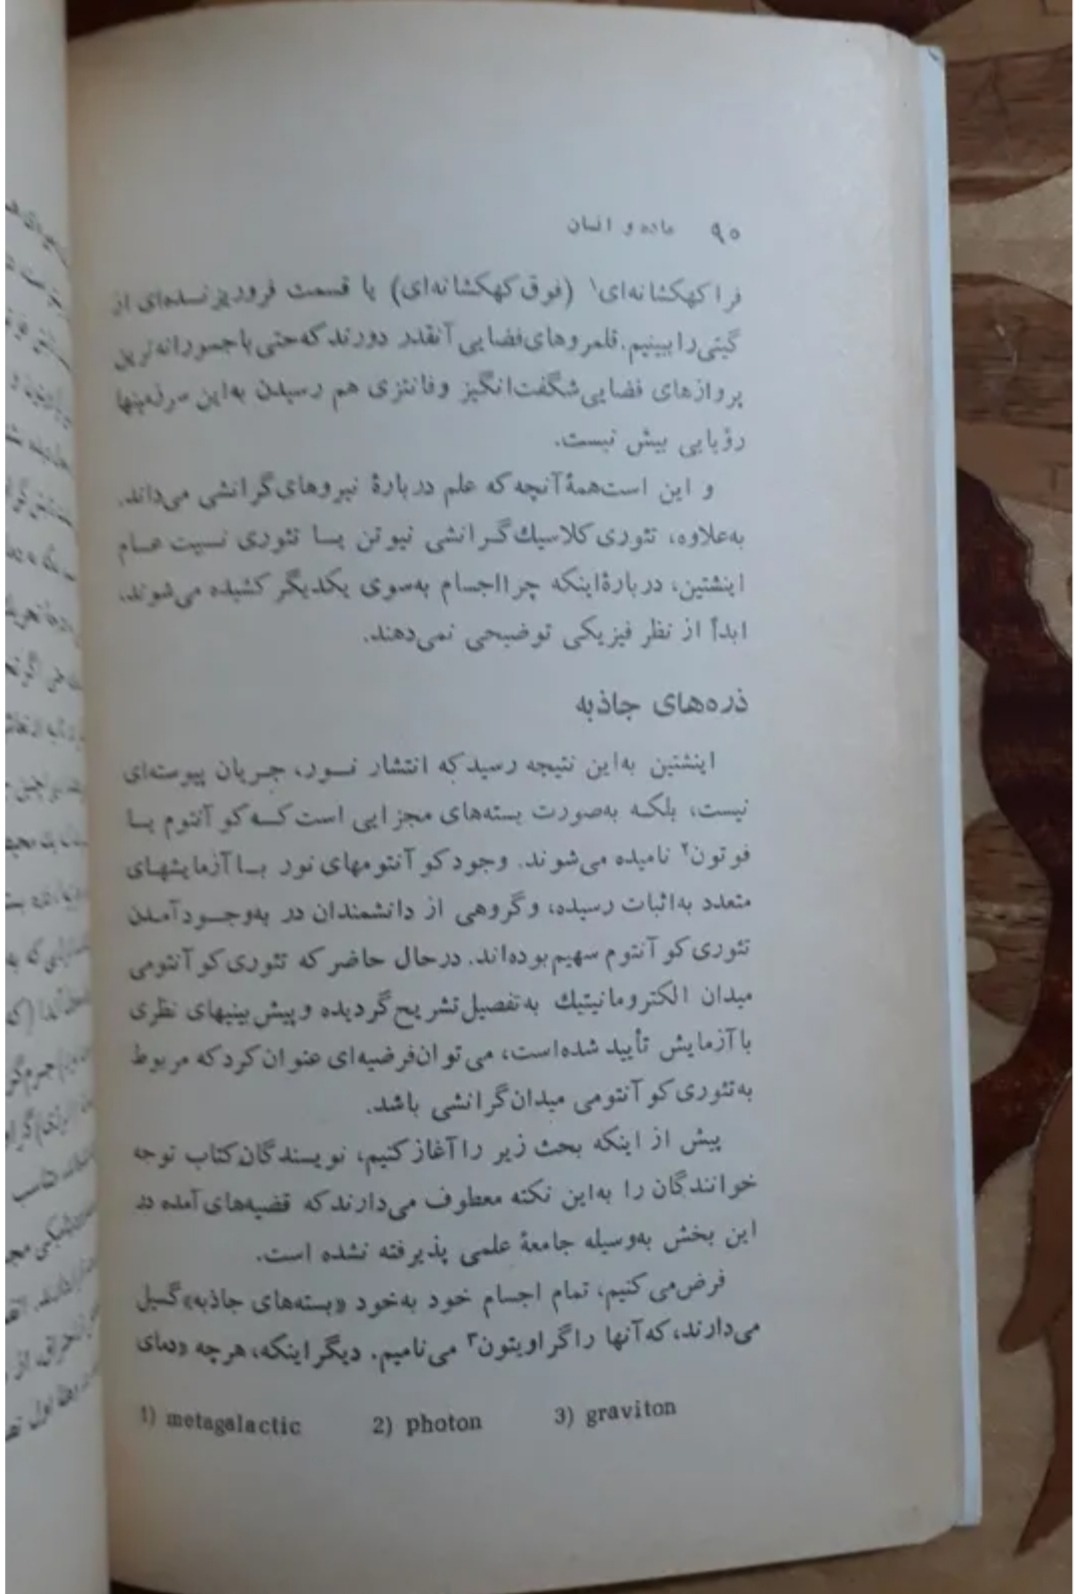 ۹۰ ماده و انسان
فراکهکشانه‌ای۱ (فوق کهکشانه‌ای) یا قسمت فروریزنده‌ای از
گیتی را ببینیم. قلمروهای فضایی آنقدر دورند که حتی با جسورانه‌ترین
پروازهای فضایی شگفت‌انگیز و فانتزی هم رسیدن به‌این سرزمینها
رؤیایی بیش نیست.
و این است همهٔ آنچه که علم دربارهٔ نیروهای گرانشی می‌داند.
به‌علاوه، تئوری کلاسیك گرانشی نیوتن یا تئوری نسبیت عام
اینشتین، دربارهٔ اینکه چرا اجسام به‌سوی یکدیگر کشیده می‌شوند،
ابداً از نظر فیزیکی توضیحی نمی‌دهند.
ذره‌های جاذبه
اینشتین به‌این نتیجه رسید که انتشار نور، جریان پیوسته‌ای
نیست، بلکه به‌صورت بسته‌های مجزایی است که کوآنتوم یا
فوتون۲ نامیده می‌شوند. وجود کوآنتومهای نور با آزمایشهای
متعدد به‌اثبات رسیده، و گروهی از دانشمندان در به‌وجود آمدن
تئوری کوآنتوم سهیم بوده‌اند. درحال حاضر که تئوری کوآنتومی
میدان الکترومانیتیك به‌تفصیل تشریح گردیده و پیش‌بینیهای نظری
با آزمایش تأیید شده‌است، می‌توان فرضیه‌ای عنوان کرد که مربوط
به‌تئوری کوآنتومی میدان گرانشی باشد.
پیش از اینکه بحث زیر را آغاز کنیم، نویسندگان کتاب توجه
خوانندگان را به‌این نکته معطوف می‌دارند که قضیه‌های آمده در
این بخش به‌وسیله جامعهٔ علمی پذیرفته نشده است.
فرض می‌کنیم، تمام اجسام خود به‌خود «بسته‌های جاذبه» گسیل
می‌دارند، که آنها را گراویتون۳ می‌نامیم. دیگر اینکه، هرچه دمای
1) metagalactic 2) photon 3) graviton